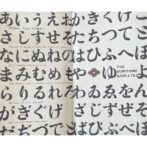 あいうえおかきくけこ
さしすせそたちつてと
なにぬねのはひふへほ
まみむめもやゆよ
THE
BANK, LTD.
らりるれろわゐゑをん
がぎぐげござじずぜぞ
だぢづでどばびぶべぼ